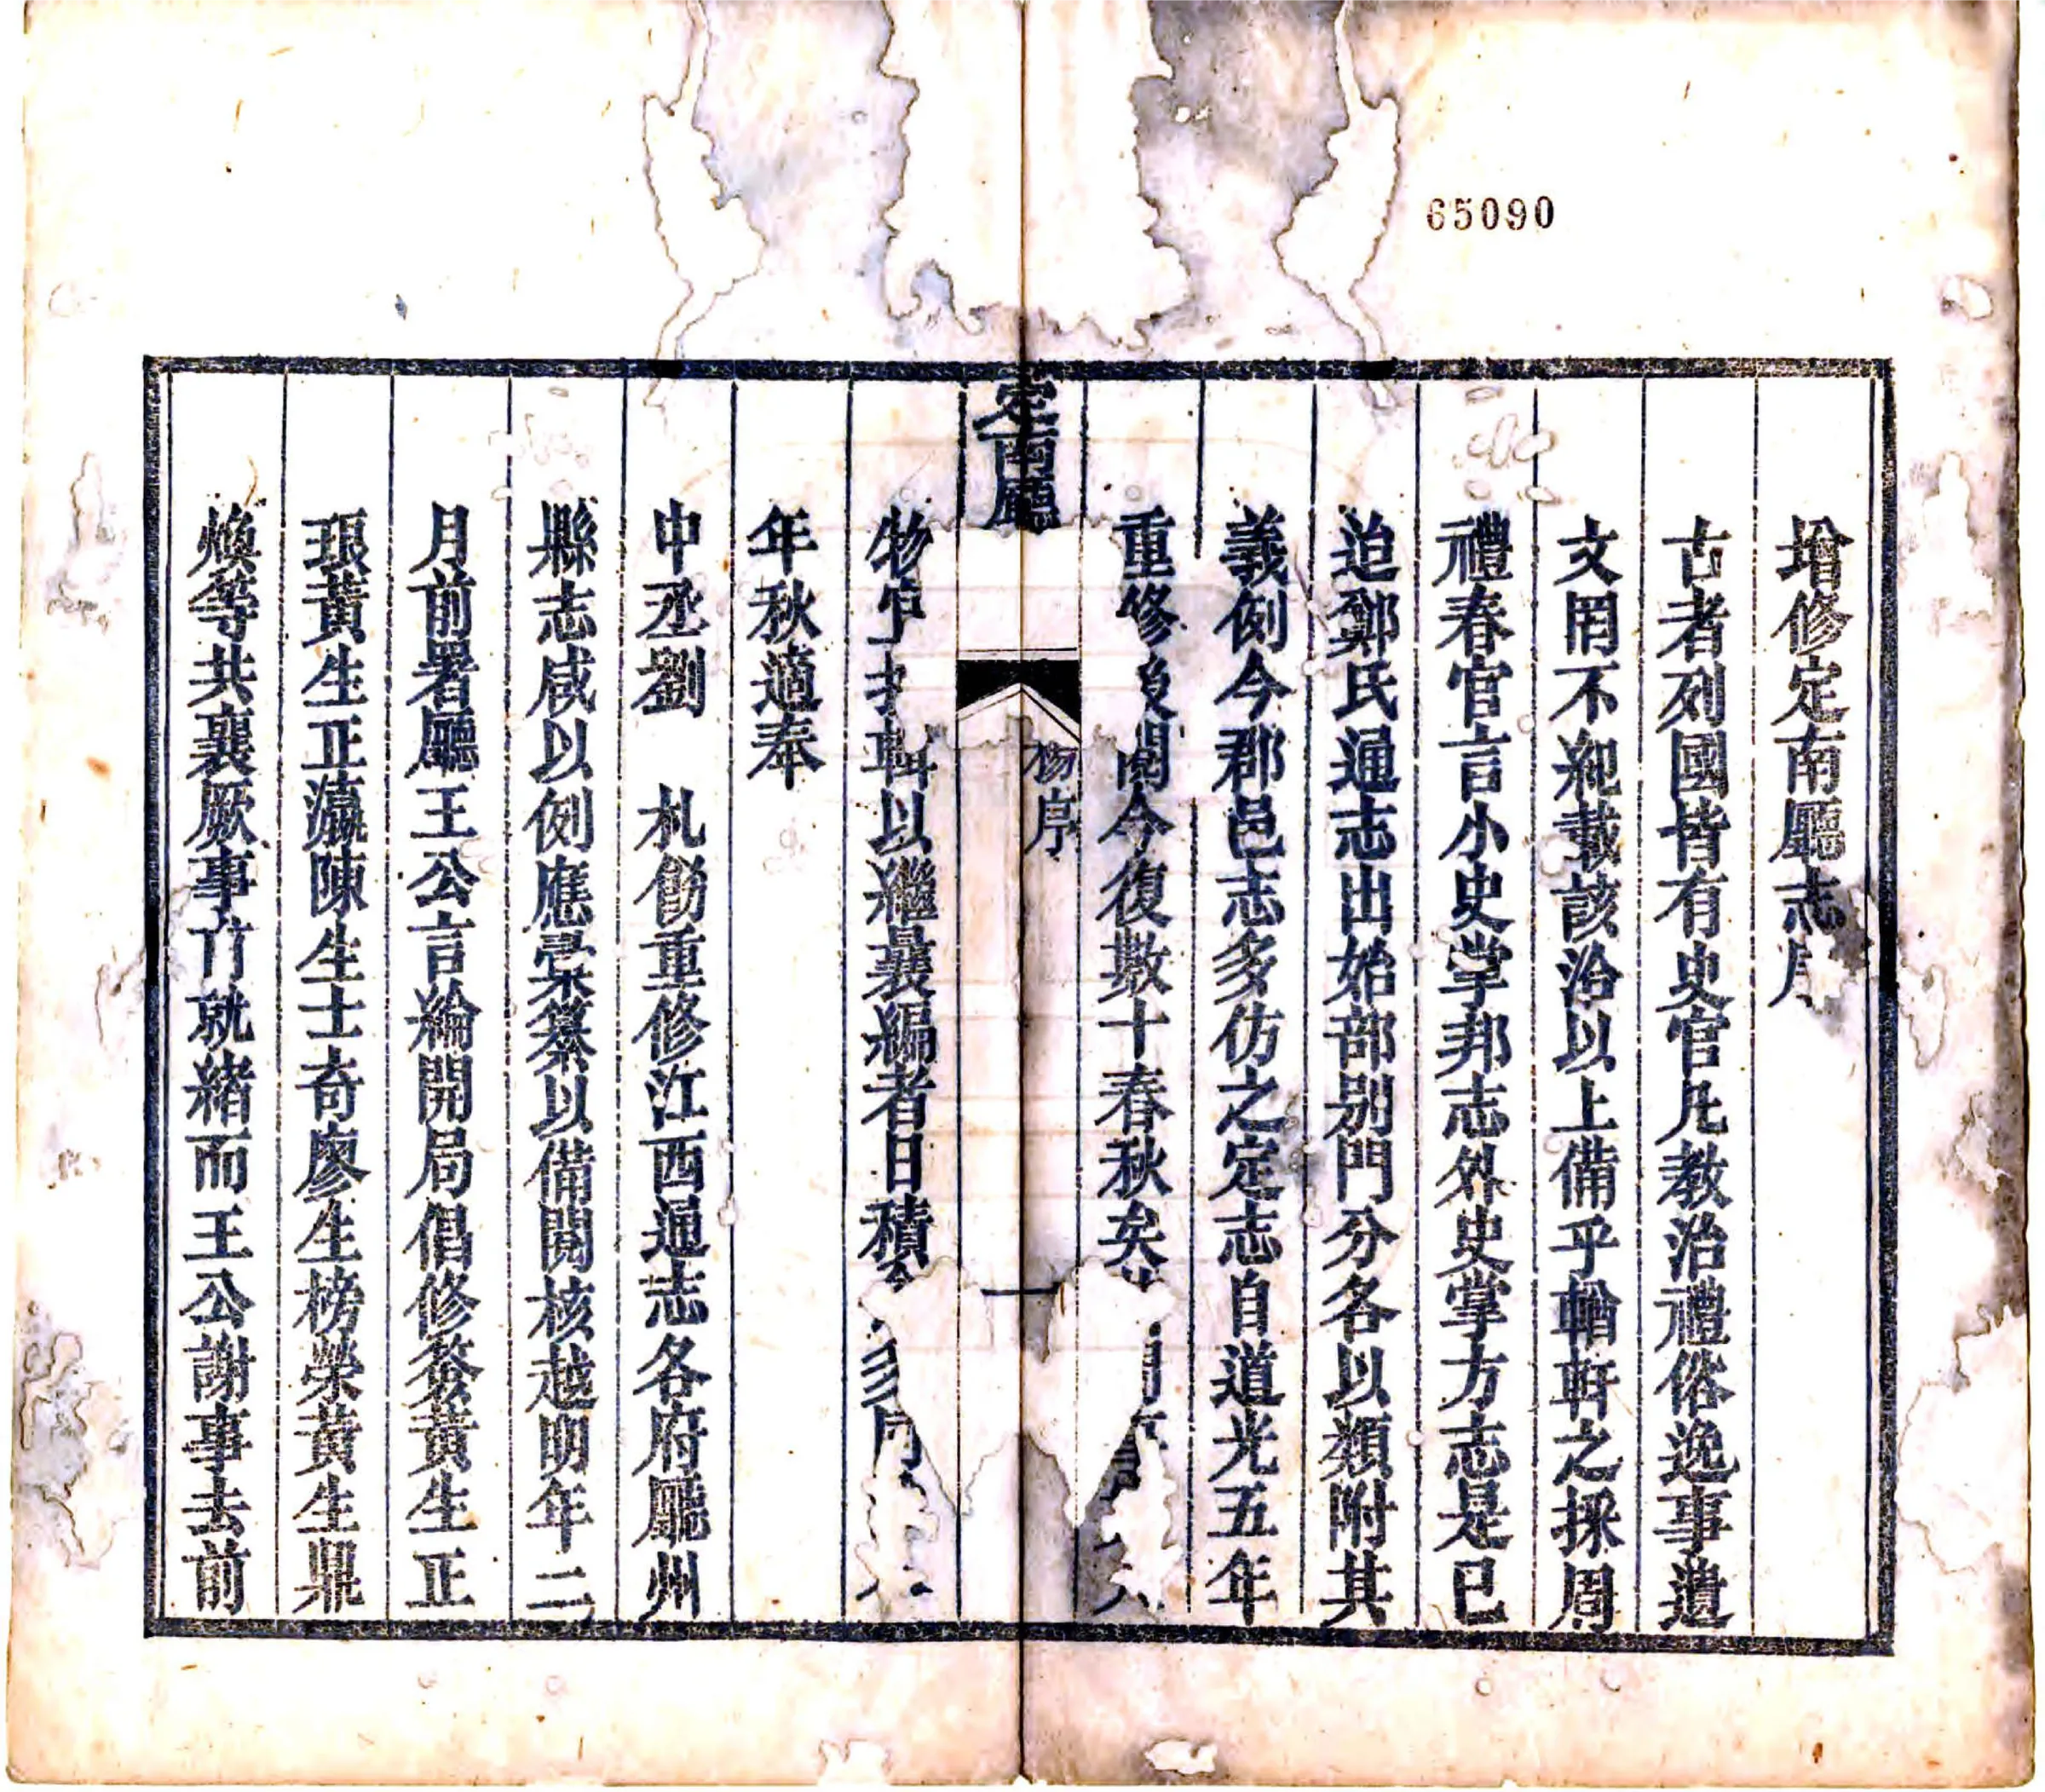 65090
增修定南廳志
古者列國皆有史官凡教治禮俗逸事遺
文罔不紀載該洽以上備乎輶軒之採周
禮春官言小史掌邦志外史掌方志是已
迨鄭氏通志出始部别門分各以類附其
義例今郡邑志多仿之定志自道光五年
重修後閱今復數十春秋矣
定南廳
杨序
一
物 輯以繼曩編者日積
年秋適奉
中丞劉 札飭重修江西通志各府廳州
縣志咸以例應彙纂以備閱核越明年二
月前署廳王公言綸開局倡修簽黃生正
琅黃生正瀛陳生士奇廖生榜榮黃生鼎
煥等共襄厥事甫就緒而王公謝事去前